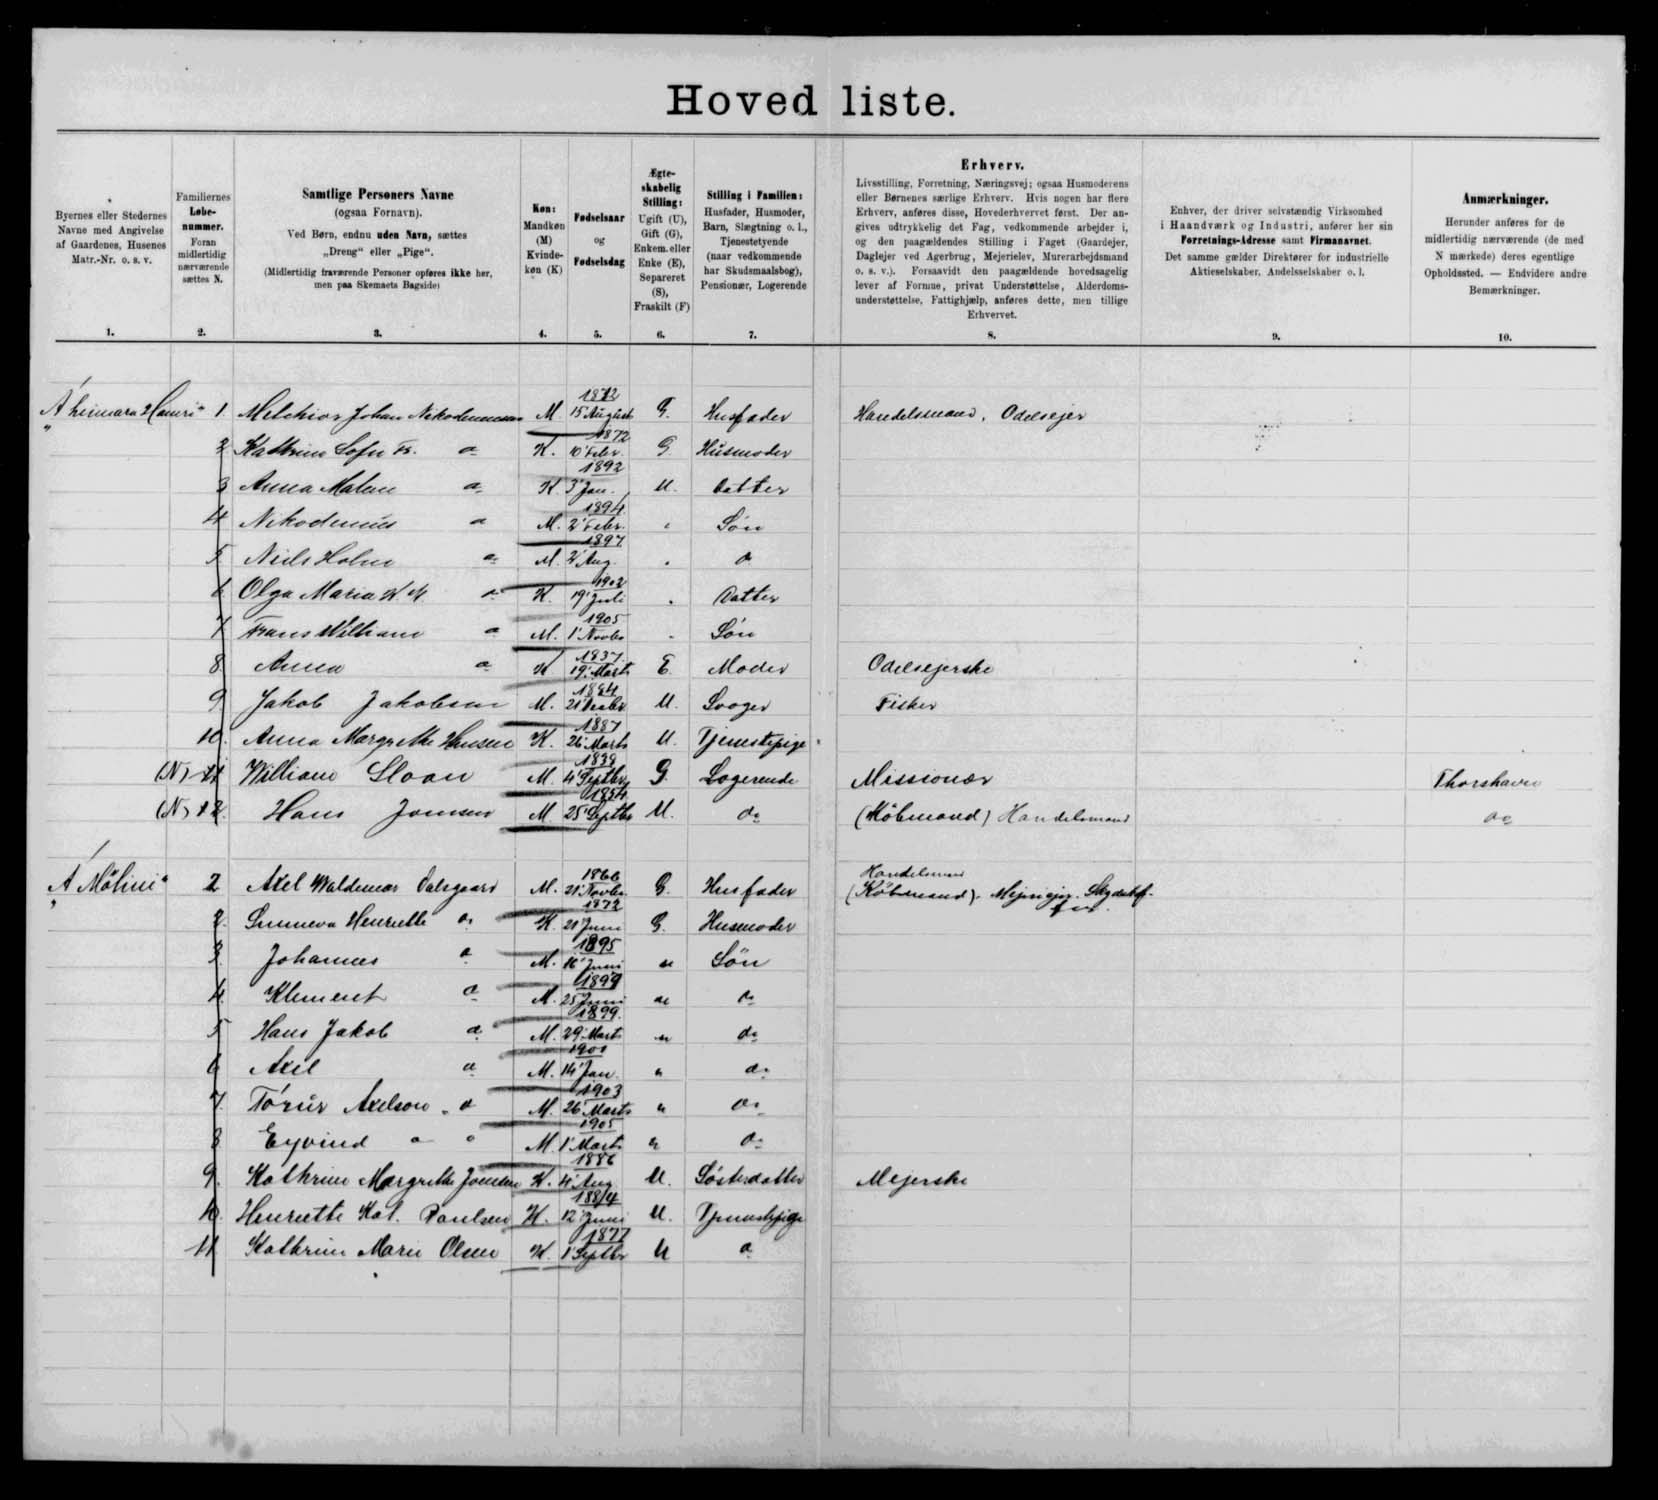 Hoved liste.
Byernes eller Stedernes
Navne med Angivelse
af Gaardenes, Husenes
Matr.-Nr. o. s. v.
1.
Familiernes
Løbe-
nummer.
Foran
midlertidig
nærværende
sættes N.
2.
Samtlige Personers Navne
(ogsaa Fornavn).
Ved Børn, endnu uden Navn, sættes
„Dreng“ eller „Pige“.
(Midlertidig fraværende Personer opføres ikke her,
men paa Skemaets Bagside)
3.
Køn:
Mandkøn
(M)
Kvinde-
køn (K)
4.
Fødselsaar
og
Fødselsdag
5.
Ægte-
skabelig
Stilling:
Ugift (U),
Gift (G),
Enkem. eller
Enke (E),
Separeret
(S),
Fraskilt (F)
6.
Stilling i Familien:
Husfader, Husmoder,
Barn, Slægtning o. l.,
Tjenestetyende
(naar vedkommende
har Skudsmaalsbog),
Pensionær, Logerende
7.
Erhverv.
Livsstilling, Forretning, Næringsvej; ogsaa Husmoderens
eller Børnenes særlige Erhverv. Hvis nogen har flere
Erhverv, anføres disse, Hovederhvervet først. Der an-
gives udtrykkelig det Fag, vedkommende arbejder i,
og den paagældendes Stilling i Faget (Gaardejer,
Daglejer ved Agerbrug, Mejerielev, Murerarbejdsmand
o. s. v.). Forsaavidt den paagældende hovedsagelig
lever af Formue, privat Understøttelse, Alderdoms-
understøttelse, Fattighjælp, anføres dette, men tillige
Erhvervet.
8.
Enhver, der driver selvstændig Virksomhed
i Haandværk og Industri, anfører her sin
Forretnings-Adresse samt Firmanavnet.
Det samme gælder Direktører for industrielle
Aktieselskaber, Andelsselskaber o. l.
9.
Anmærkninger.
Herunder anføres for de
midlertidig nærværende (de med
N mærkede) deres egentlige
Opholdssted. — Endvidere andre
Bemærkninger.
10.
1 Melchior Johan Nikodemussen M. 1872 15 August G. Husfader Handelsmand, Odelsejer
2 Kathrine Sofie Fr. do K. 1872 10 Febr. G Husmoder
3 Anna Malene do K. 1892 3 Jan. U. Datter
4 Nikodemus do M. 1894 2 Febr. " Søn
5 Niels Holm do M. 1897 2 Aug. " do
6 Olga Maria do K. 1902 19 Juli " Datter
7 Frans William do M. 1905 1 Novbr " Søn
8 Anna do K 1837 19 Marts E. Moder Odelsejerske
9 Jakob Jakobsen M. 21 U. Svoger Fisker
10. Anna Margrethe Hansen K. 1887 26 Marts U. Tjenestepige
(N) 11 William Sloan M. 1838 4 Septbr G. Logerende Missionær Thorshavn
(N) 12. Hans Joensen M. 1854 25 Septbr U. do (Købmand) Handelsmand do
Handelsmand
Á Mølini 2 Axel Waldemar Dalsgaard M. 1866 21 Novbr. G. Husfader (Købmand).
2. Sunneva Henriette do K. 1872 21 Juni G. Husmoder
3. Johannes do M. 1895 16 Juni u Søn
4. Klement do M. 25 Juni u do
5 Hans Jakob do M. 1899. 29 Marts u do
6 Axel do M. 14 Jan. u do
7. Tórur Axelson do M. 1903 26 Marts u do
8 Eyvind do do M. 1905 1 Marts u do
9. Kathrine Margrethe Joensen K. 1886 4 Aug U. Søsterdatter Mejerske
10. Henriette Kat. Poulsen K. 1884 12 Juni U. Tjenestepige
11 Kathrine Marie Olsen K. 1877 1 Septbr U do